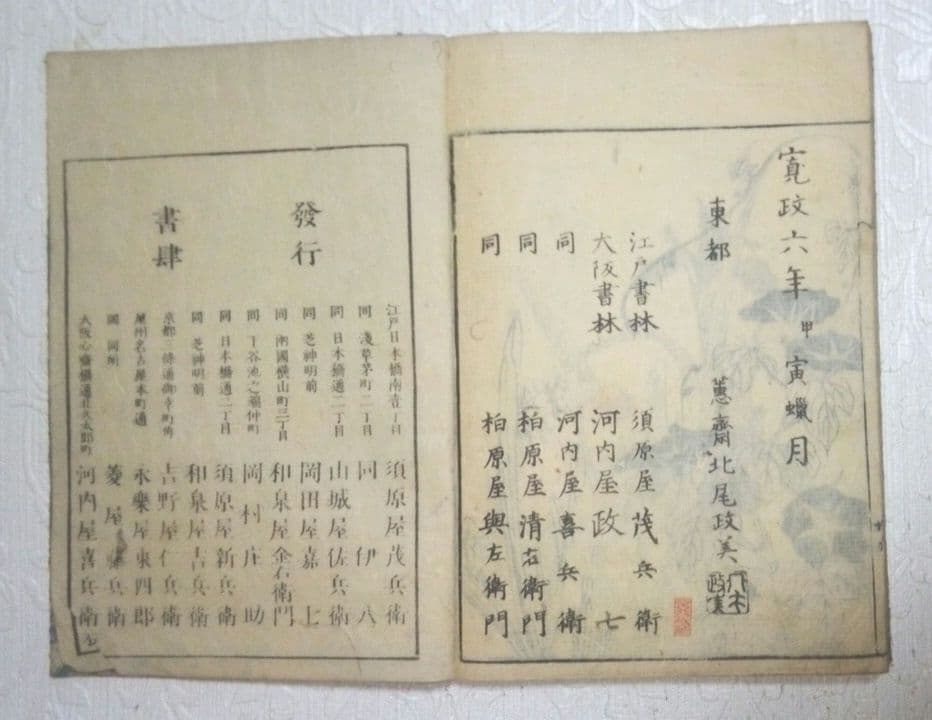 寛政六年甲寅蠟月
東都 蕙齋北尾政美
江戸書林 須原屋茂兵衛
大阪書林 河内屋政七
同 河内屋喜兵衛
同 柏原屋清右衛門
同 柏原屋與左衛門
發行
書肆
江戸日本橋南壹丁目 須原屋茂兵衛
同 淺草茅町二丁目 同伊八
同 日本橋通二丁目 山城屋佐兵衛
同 芝神明前 岡田屋嘉七
同 兩國横山町三丁目 和泉屋金右衛門
同 下谷池之端仲町 岡村庄助
同 日本橋通二丁目 須原屋新兵衛
同 芝神明前 和泉屋吉兵衛
京都三條通御幸町角 吉野屋仁兵衛
尾州名古屋本町通 永樂屋東四郎
同 同所 菱屋藤兵衛
大阪心齋橋通北久太郎町 河内屋喜兵衛